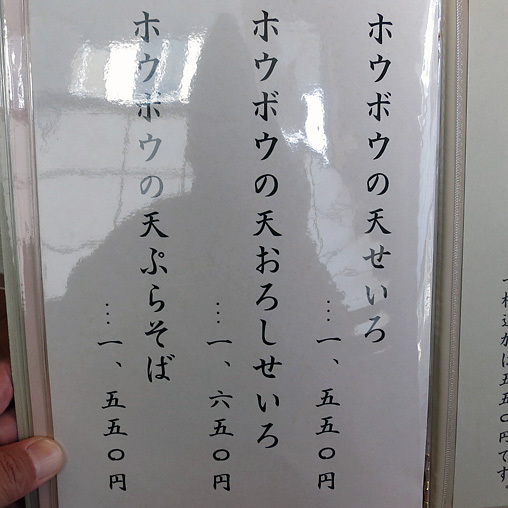 一枚追加は五五〇円です。
ホウボウの天せいろ
…一、五五〇円
ホウボウの天おろしせいろ
…一、六五〇円
ホウボウの天ぷらそば
…一、五五〇円